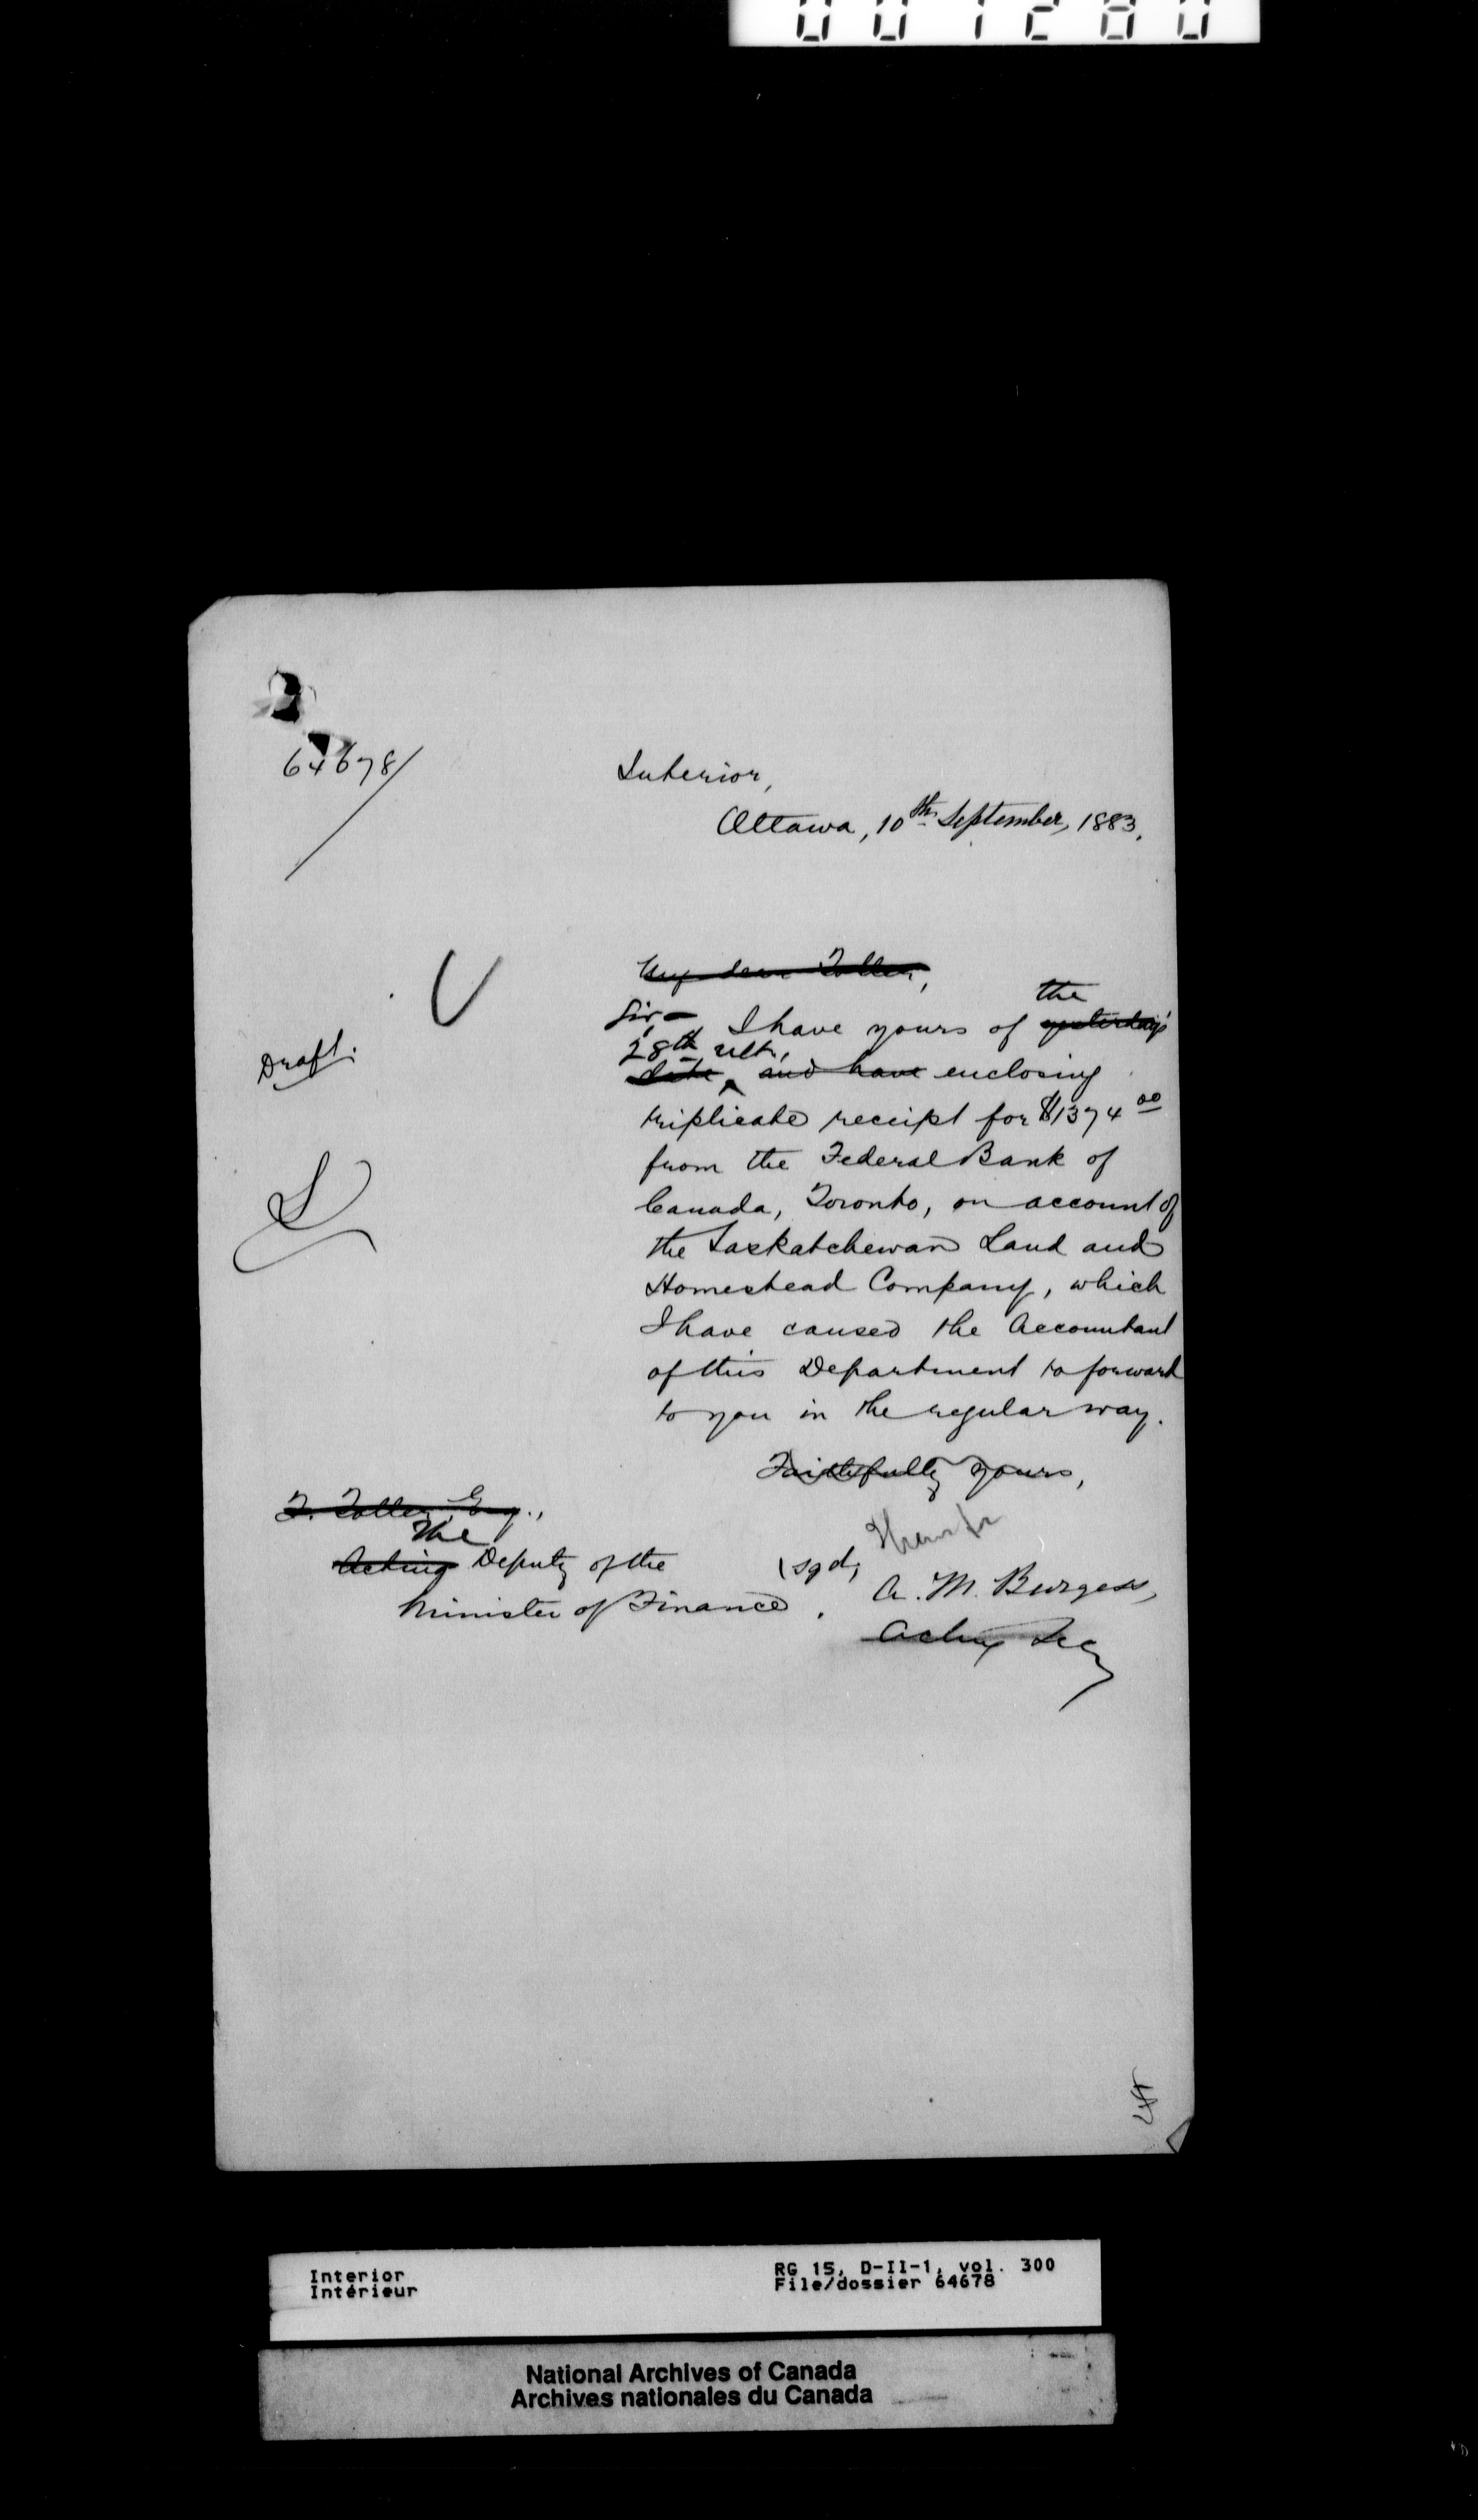 001280
64678/
Interior,
Ottawa, 10th September, 1883.
My dear Toller,
the
Sir - I have yours of yesterday's
28th ult,
date, and have enclosing
triplicate receipt for $1374 00
from the Federal Bank of
Canada, Toronto, on account of
the Saskatchewan Land and
Homestead Company, which
I have caused the Accountant
of this Department to forward
to you in the regular way.
Faithfully yours,
Draft.
T. Toller, Esq.,
The
Acting Deputy of the
Minister of Finance.
(sgd,
A. M. Burgess,
Acting Secy
Interior
Intérieur
RG 15, D-II-1, vol. 300
File/dossier 64678
National Archives of Canada
Archives nationales du Canada